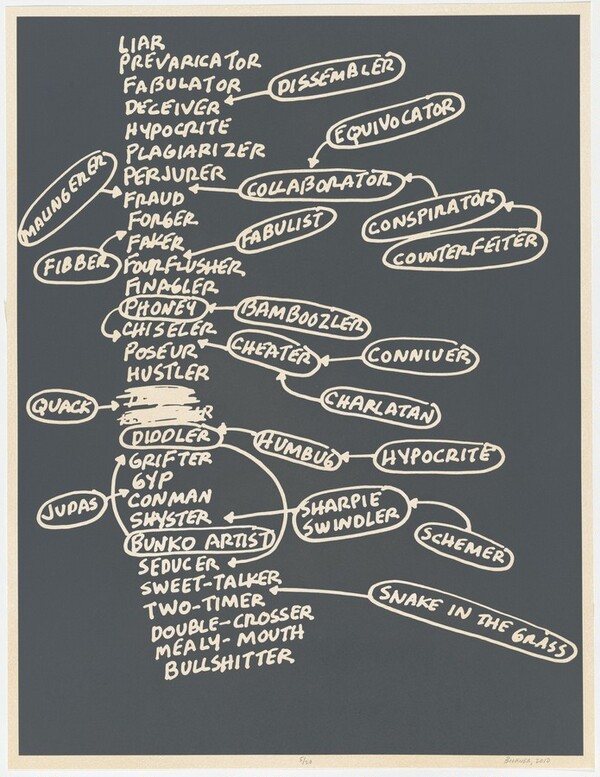 LIAR
PREVARICATOR
FABULATOR
DISSEMBLER
DECEIVER
EQUIVOCATOR
HYPOCRITE
PLAGIARIZER
PERJURER
COLLABORATOR
MALINGERER
FRAUD
CONSPIRATOR
FORGER
FABULIST
COUNTERFEITER
FAKER
FIBBER
FOURFLUSHER
FINAGLER
PHONEY
BAMBOOZLER
CHISELER
POSEUR
CHEATER
CONNIVER
HUSTLER
QUACK
CHARLATAN
R
DIDDLER
HUMBUG
HYPOCRITE
GRIFTER
GYP
JUDAS
CONMAN
SHARPIE
SWINDLER
SHYSTER
BUNKO ARTIST
SCHEMER
SEDUCER
SWEET-TALKER
TWO-TIMER
SNAKE IN THE GRASS
DOUBLE-CROSSER
MEALY-MOUTH
BULLSHITTER